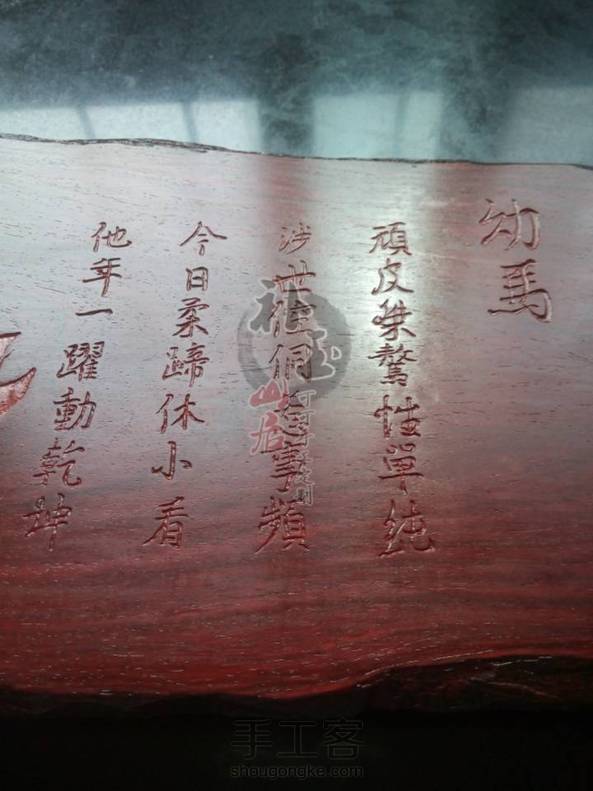 幼馬
頑皮桀驁性單純
涉世倥侗惹事頻
今日柔蹄休小看
他年一躍動乾坤
山居
手工客
shougongke.com